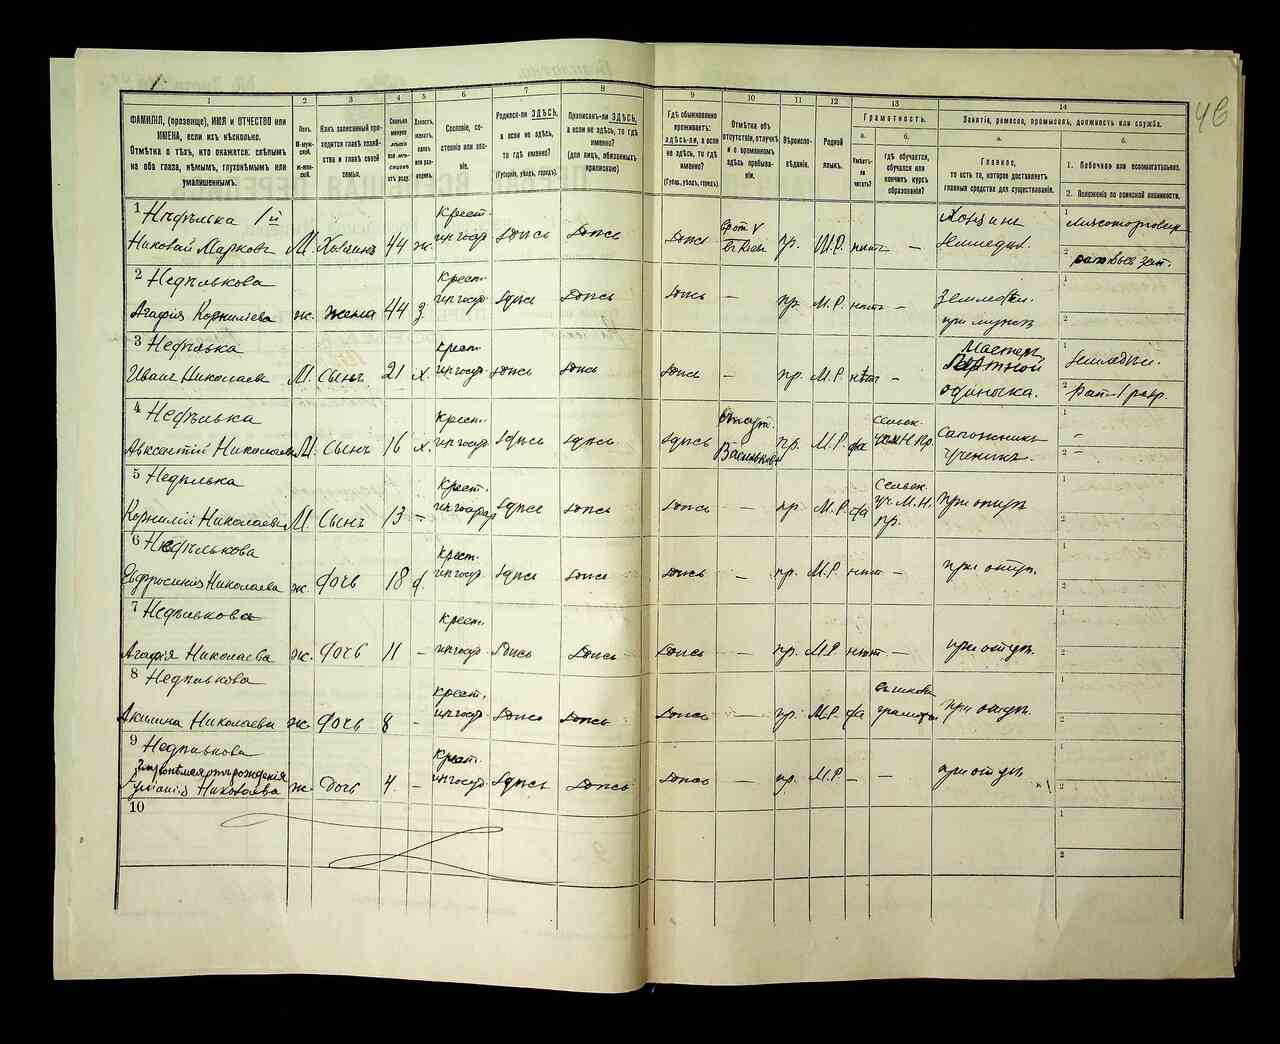 46
1 2 3 4 5 6 7 8 9 10 11 12 13 14
ФАМИЛІЯ, (прозвище), ИМЯ и ОТЧЕСТВО или
ИМЕНА, если ихъ нѣсколько.
Отмѣтка о тѣхъ, кто окажется: слѣпымъ
на оба глаза, нѣмымъ, глухонѣмымъ или
умалишеннымъ.
Полъ.
М-муж-
ской.
Ж-жен-
скій.
Какъ записанный при-
ходится главѣ хозяй-
ства и главѣ своей
семьи.
Сколько
минуло
лѣтъ
или мѣ-
сяцевъ
отъ роду.
Холостъ,
женатъ,
вдовъ
или раз-
веденъ.
Сословіе, со-
стояніе или зва-
ніе.
Родился-ли ЗДѢСЬ,
а если не здѣсь,
то гдѣ именно?
(Губернія, уѣздъ, городъ).
Приписанъ-ли ЗДѢСЬ,
а если не здѣсь, то гдѣ
именно?
(для лицъ, обязанныхъ
припискою)
Гдѣ обыкновенно
проживаетъ:
здѣсь-ли, а если
не здѣсь, то гдѣ
именно?
(Губерн., уѣздъ, городъ).
Отмѣтка объ
отсутствіи, отлучкѣ
и о временномъ
здѣсь пребыва-
ніи.
Вѣроиспо-
вѣданіе.
Родной
языкъ.
Грамотность.
а.
Умѣетъ-
ли
читать?
б.
гдѣ обучается,
обучался или
кончилъ курсъ
образованія?
Занятіе, ремесло, промыселъ, должность или служба.
а.
Главное,
то есть то, которое доставляетъ
главныя средства для существованія.
б.
1. Побочное или вспомогательное.
2. Положеніе по воинской повинности.
1 Недѣлька 1й
Николай Марковъ М. Хозяинъ 44 ж. Крест. изъ госуд. здѣсь здѣсь здѣсь пр. М.Р. нѣтъ – Хозяинъ
земледѣл.
2 Недѣлькова
Агафія Корнилієва ж. жена 44 з. Крест. изъ госуд. здѣсь здѣсь здѣсь – пр. М.Р. нѣтъ – Земледѣл.
при мужѣ
3 Недѣлька
Иванъ Николаевъ М. Сынъ 21 х. Крест. изъ госуд. здѣсь здѣсь здѣсь – пр. М.Р. нѣтъ – Мастеръ
Портной
одиночка. земледѣл.
4 Недѣлька
Авксентій Николаевъ М. Сынъ 16 х. Крест. изъ госуд. здѣсь здѣсь здѣсь Отсут.
Васильковъ пр. М.Р. да сельск.
уч. М.Н.Пр. Сапожникъ
ученикъ.
5 Недѣлька
Корнилій Николаевъ М. Сынъ 13 – Крест. изъ госуд. здѣсь здѣсь здѣсь – пр. М.Р. да Сельск.
уч. М.Н.
пр. при отцѣ
6 Недѣлькова
Евфросинія Николаева ж. дочь 18 д. Крест. изъ госуд. здѣсь здѣсь здѣсь – пр. М.Р. нѣтъ – при отцѣ.
7 Недѣлькова
Агафія Николаева ж. дочь 11 – Крест. изъ госуд. здѣсь здѣсь здѣсь – пр. М.Р. нѣтъ – при отцѣ.
8 Недѣлькова
Акилина Николаева ж. дочь 8 – Крест. изъ госуд. здѣсь здѣсь здѣсь – пр. М.Р. да при отцѣ.
9 Недѣлькова
Николаева ж. дочь 4 – Крест. изъ госуд. здѣсь здѣсь здѣсь пр. М.Р. – – при отцѣ
10